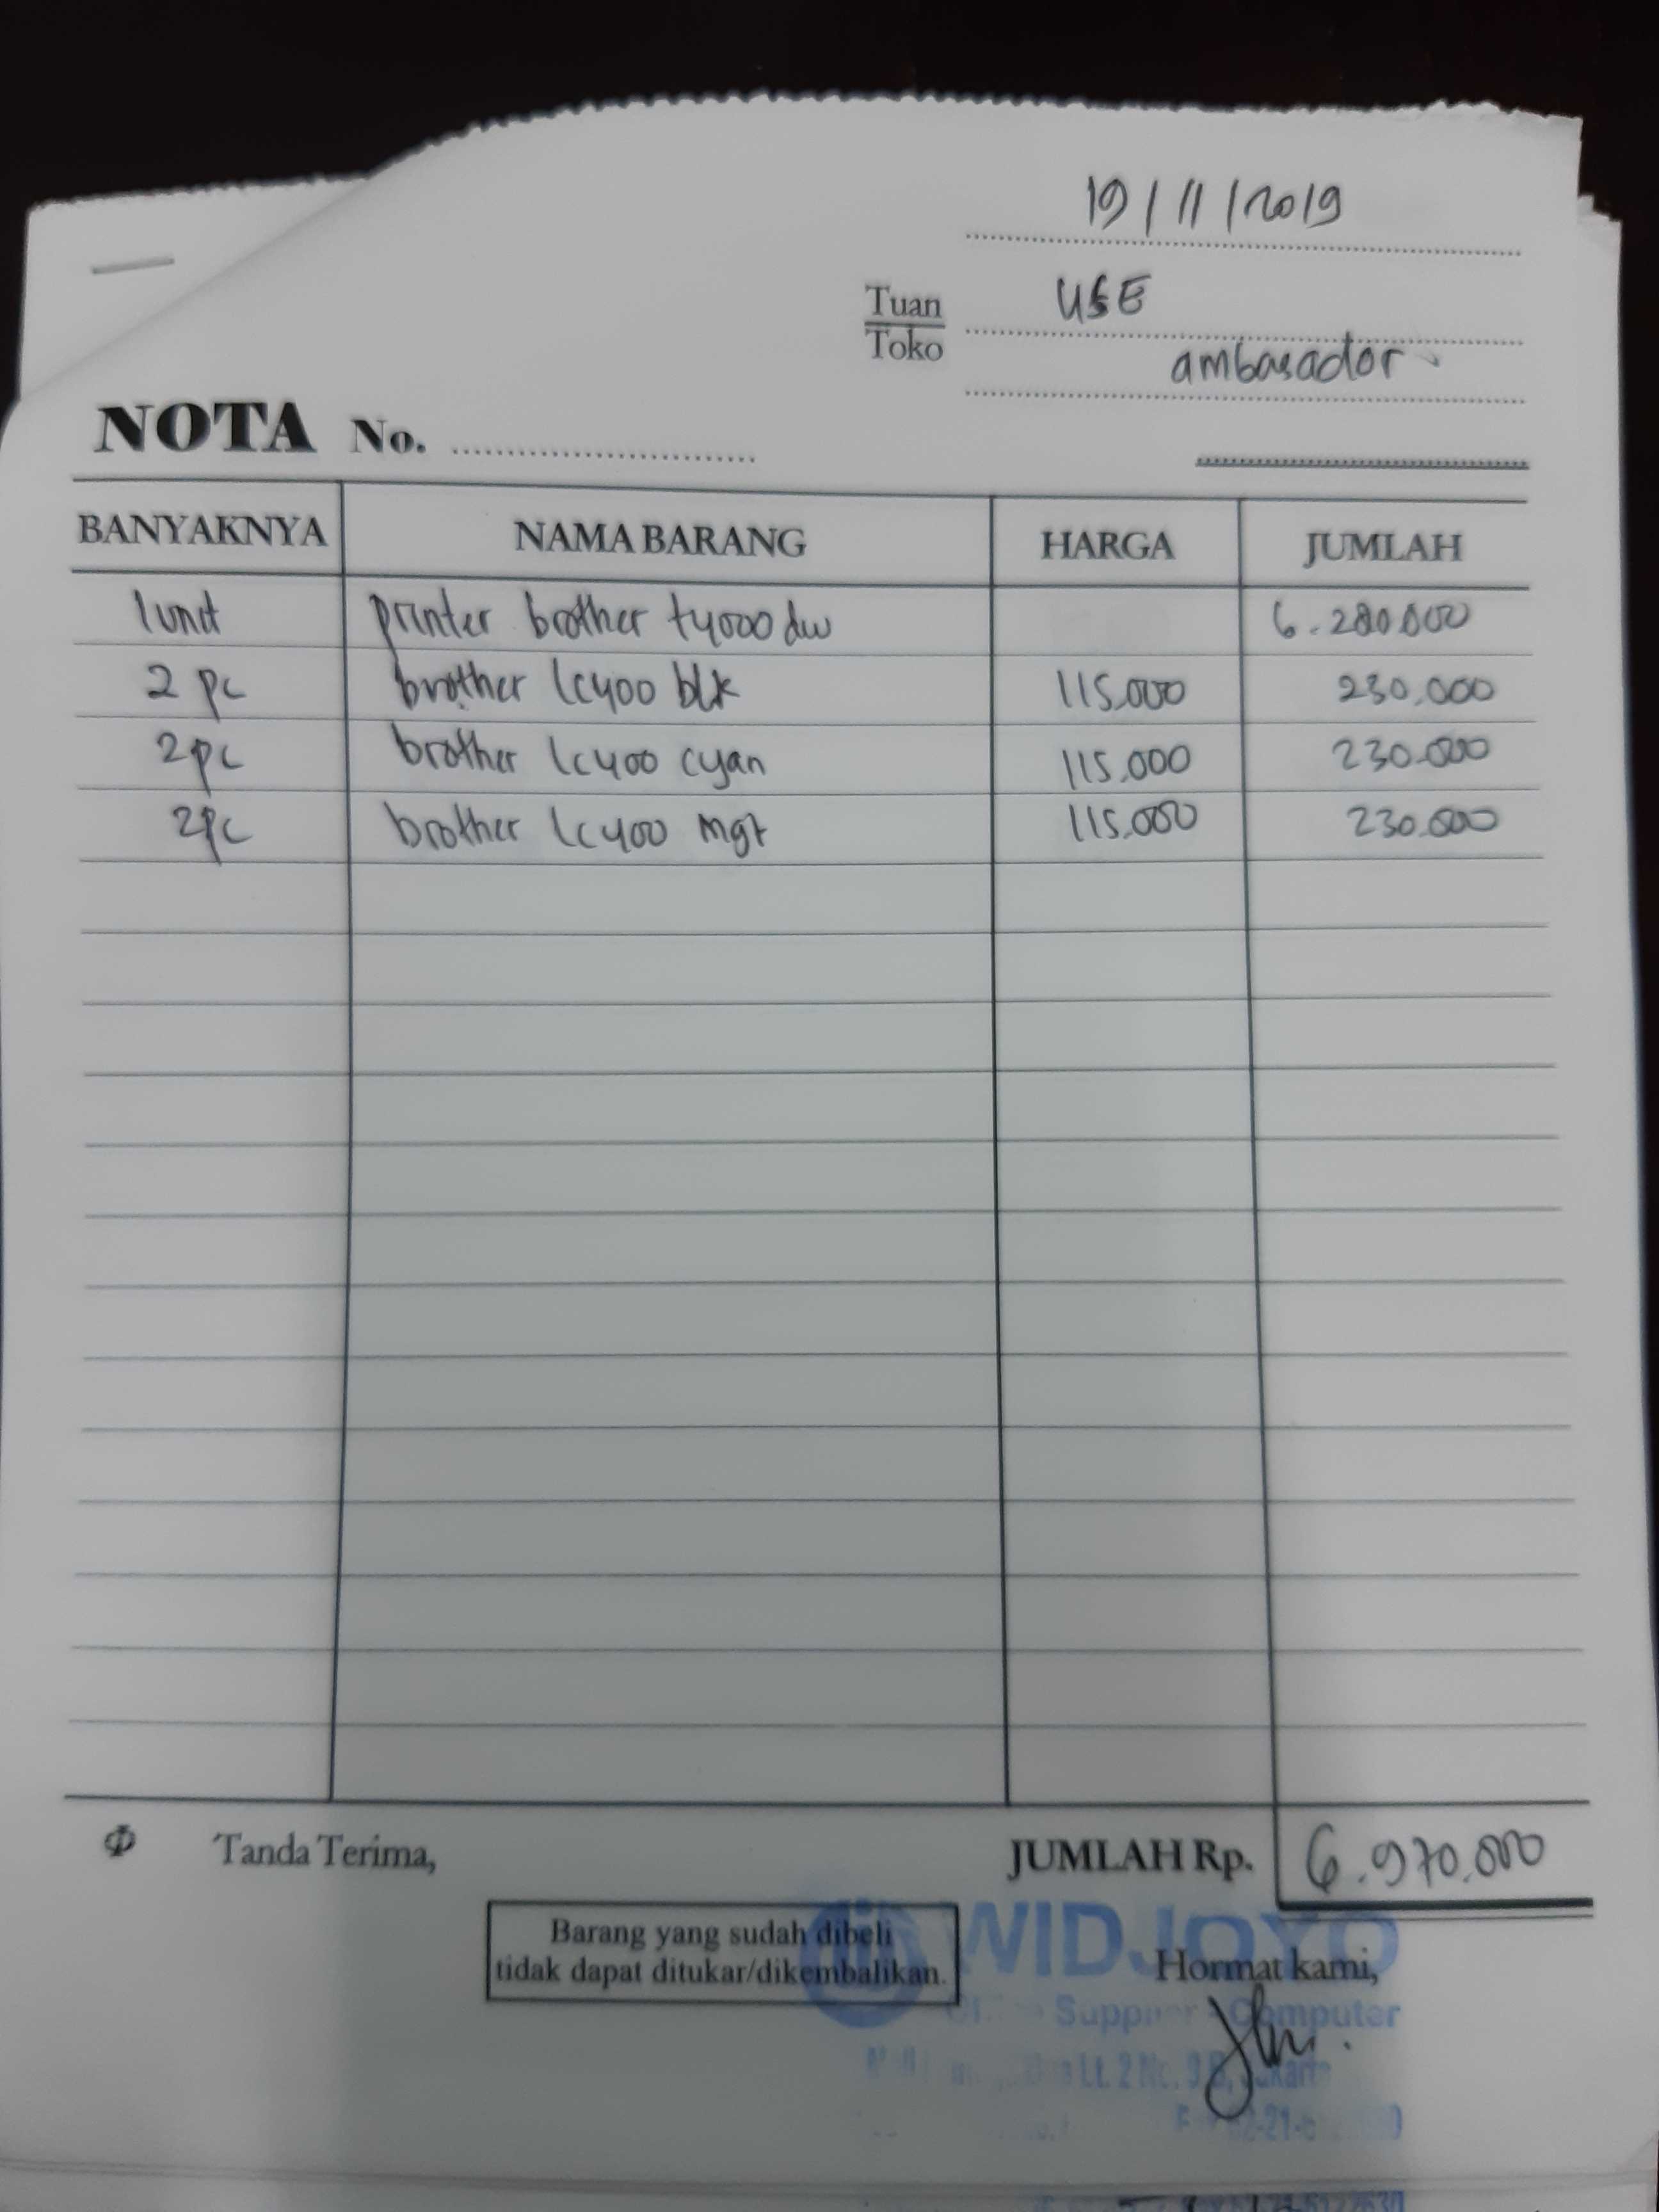 19/11/2019
Tuan USE
Toko ambasador
NOTA No.
BANYAKNYA NAMA BARANG HARGA JUMLAH
1 unit printer brother t4000 dw 6.280.000
2 pc brother lc400 blk 115.000 230.000
2 pc brother lc400 cyan 115.000 230.000
2 pc brother lc400 mgt 115.000 230.000
Tanda Terima, JUMLAH Rp. 6.970.000
Barang yang sudah dibeli
tidak dapat ditukar/dikembalikan.
WIDJOYO
Hormat kami,
Computer
Lt. 2